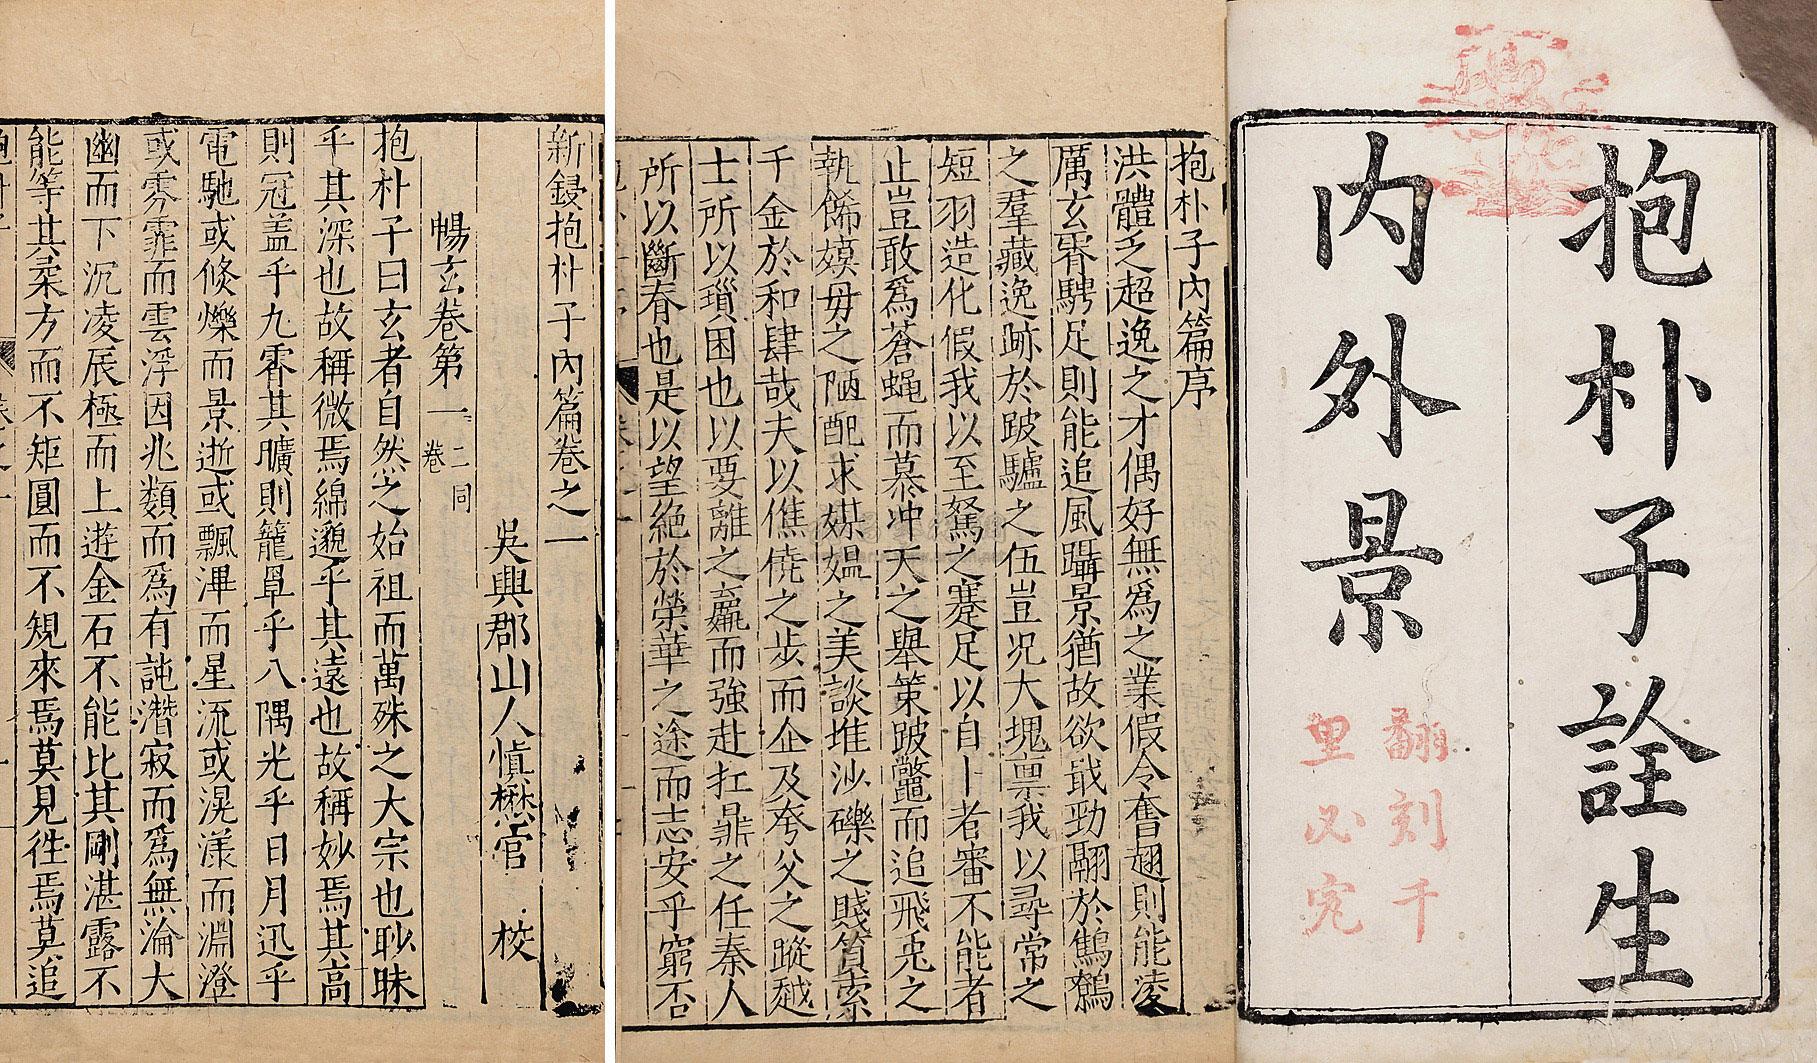 抱朴子詮生
内外景
翻刻千
里必究
抱朴子內篇序
洪體乏超逸之才偶好無爲之業假令奮翅則能凌
厲玄霄騁足則能追風躡景猶故欲戢勁翮於鷦鷯
之羣藏逸跡於跛驢之伍豈况大塊禀我以尋常之
短羽造化假我以至駑之蹇足以自卜者審不能者
止豈敢爲蒼蝇而慕冲天之舉策跛鼈而追飛兎之
執飾嫫毋之陋配求媒媪之美談堆沙礫之賤質索
千金於和肆哉夫以僬僥之步而企及夸父之蹤越
士所以躓困也以要離之羸而強赴扛鼎之任秦人
所以斷脊也是以望絕於榮華之途而志安乎窮否
新鋟抱朴子內篇卷之一
吳興郡山人愼懋官 校
暢玄卷第一 二同卷
抱朴子曰玄者自然之始祖而萬殊之大宗也眇昧
乎其深也故稱微焉綿邈乎其遠也故稱妙焉其高
則冠盖乎九霄其曠則籠罩乎八隅光乎日月迅乎
電馳或倏爍而景逝或飄滭而星流或滉漾而淵澄
或雰霏而雲浮因兆類而爲有託潛寂而爲無淪大
幽而下沉凌辰極而上遊金石不能比其剛湛露不
能等其柔方而不矩圓而不規來焉莫見徃焉莫追